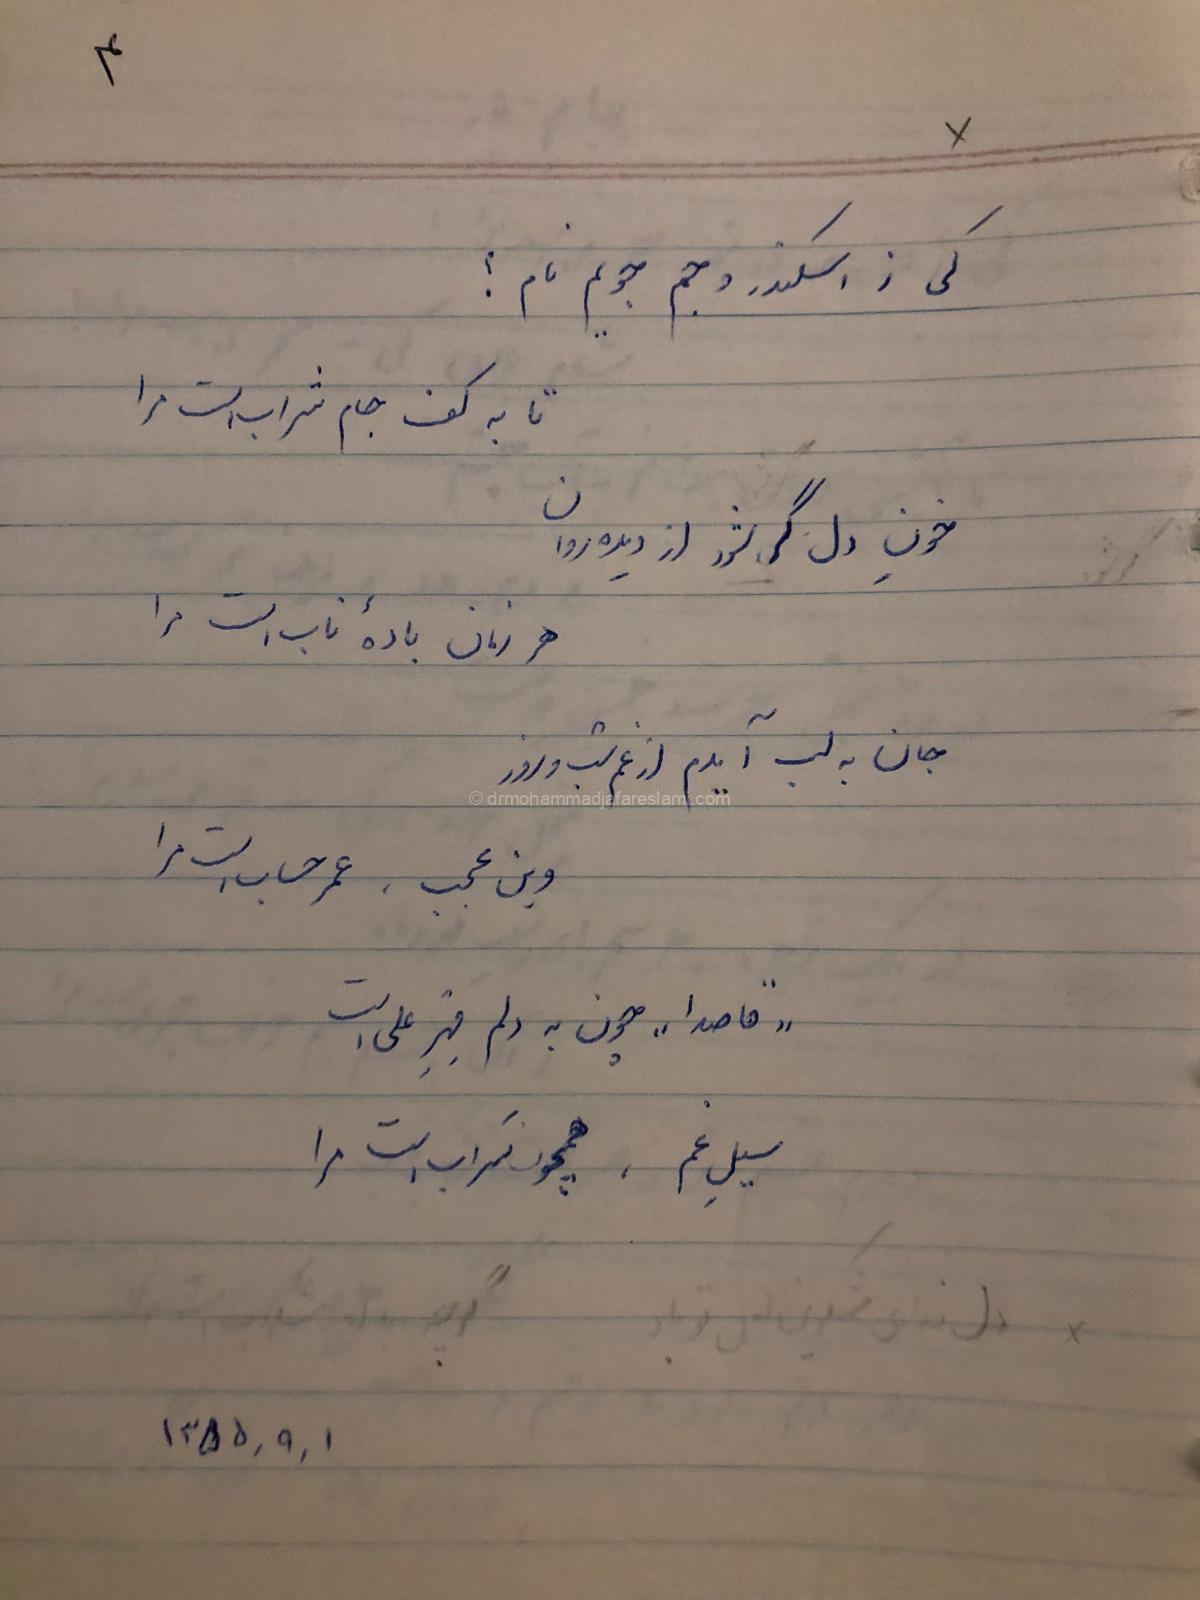 ۳
×
کی ز اسکندر و جم جویم نام ؟
تا به کف جام شراب است مرا
خونِ دل گر شود از دیده روان
گر شود
هر زمان بادهٔ ناب است مرا
جان به لب آیدم از غم شب و روز
© drmohammadjafareslami.com
وین عجب ، عمر حساب است مرا
"قاصدا" چون به دلم مِهرِ علی است
سیلِ غم ، همچون سراب است مرا
× دل
گرچه
۱۳۸۵,۹,۱